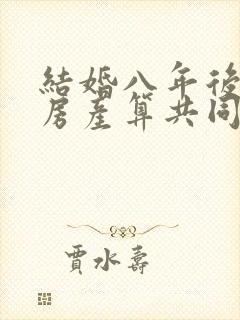 結婚八年後
房產算共同
賈水壽